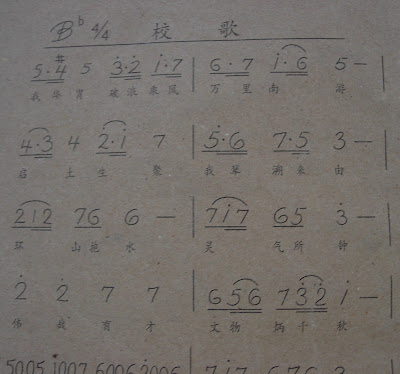 B♭ 4/4 校 歌
5·#4 5 3̇·2̇ i·7 | 6·7 i·6 5 — |
我华胄 破浪乘风 万里南 游
4·3 4 2̇·i 7 | 5·6 7·5 3 — |
启土生 聚 我 溯来由
2̇i2̇ 76 6 — | 7i7 65 3̇ — |
环 山 水 灵 气所钟
2̇ 2̇ 7 7 | 656 73̇2̇ i —
伟 哉 育 才 文物 炳千 秋